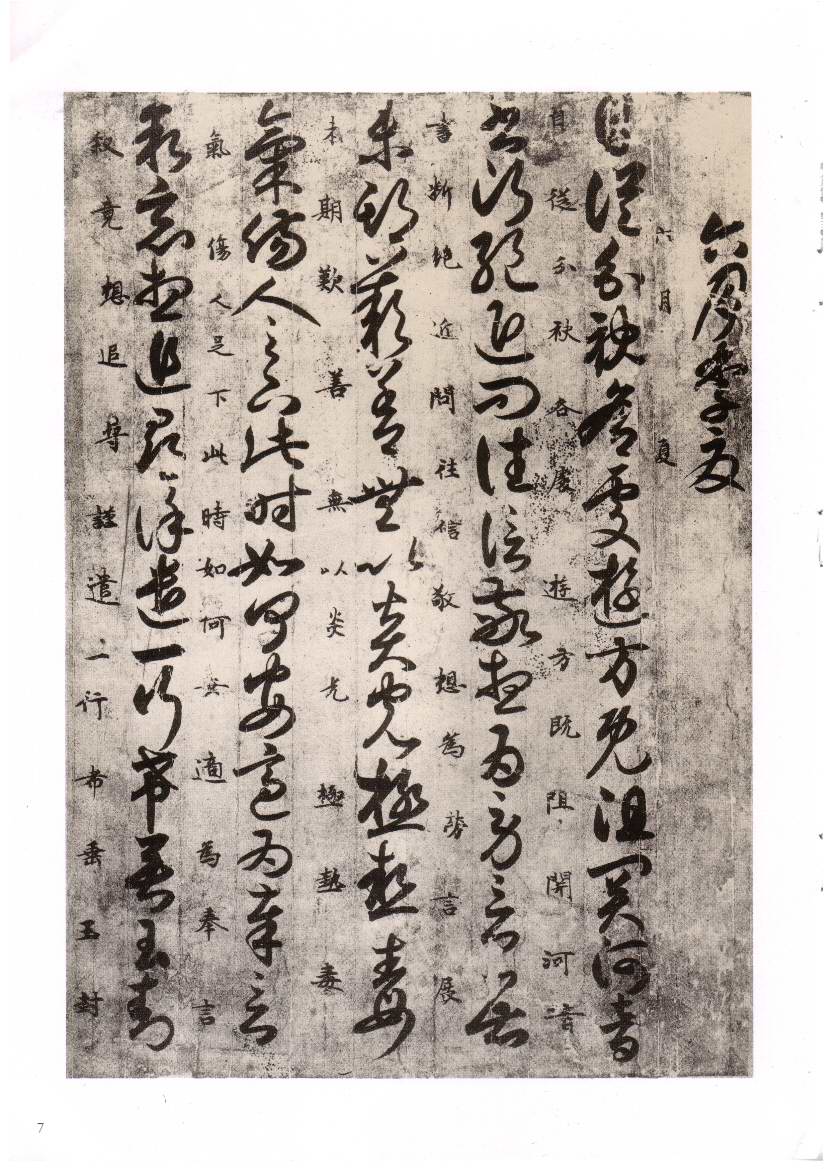 六月季夏
六月 夏
自從分袂各處遊方既阻關河音
自從分袂各處遊方既阻開河音
書斷絕近問往信敬想為勞言展
書斷絕近問往信敬想為勞言展
未期歎善無以炎光極熱毒
未期歎善無以炎光極熱毒
氣傷人足下此時如何安適為奉言
氣傷人足下此時如何安適為奉言
叙竟想追尋謹遣一行希垂玉封
叙竟想追尋謹遣一行希垂玉封
7